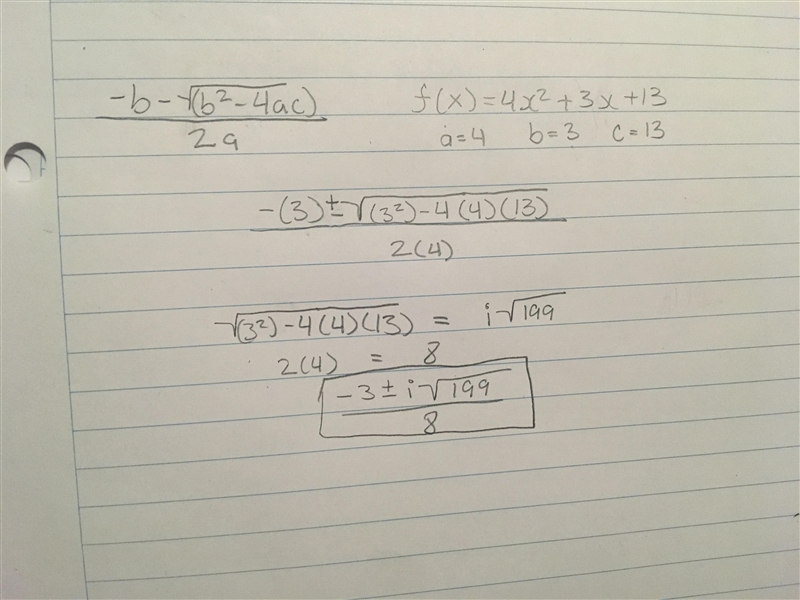 -b-√(b²-4ac) f(x)=4x²+3x+13
2a a=4 b=3 c=13
-(3)±√(3²)-4(4)(13)
2(4)
√(3²)-4(4)(13) = i√199
2(4) = 8
-3±i√199
8